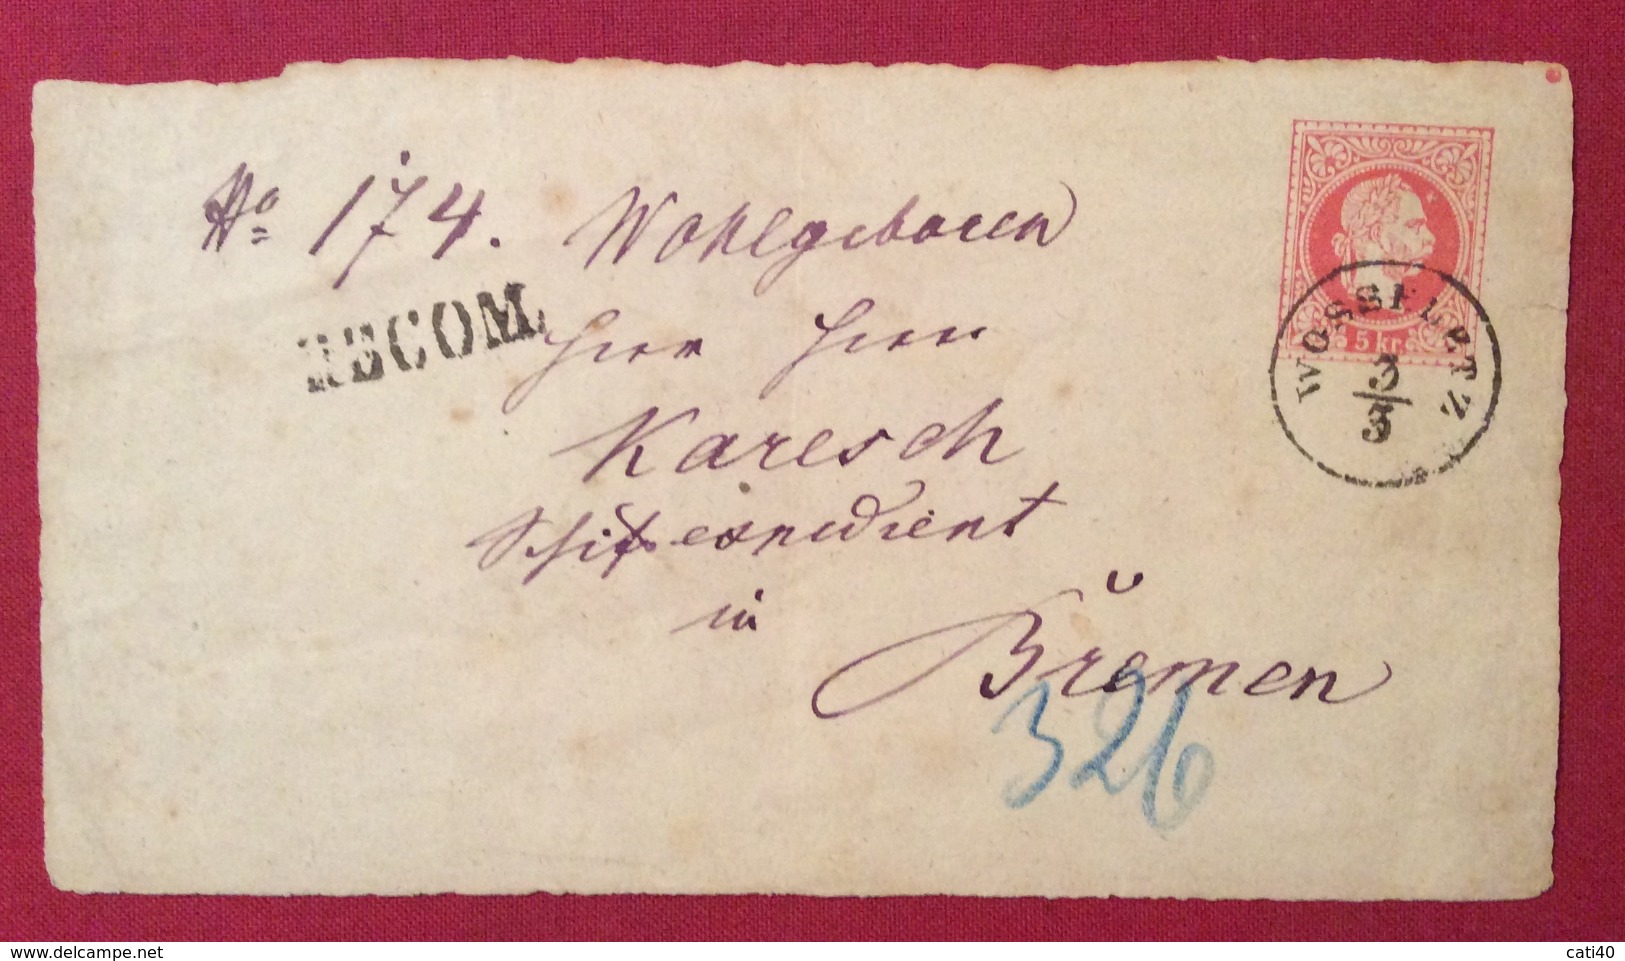 No 174. Wohlgeboren
RECOM.
Herr Herr
Karesch
Schifsexpedient
in
Bremen
326
5 kr.
WOSSELETZ
3/3
cati40